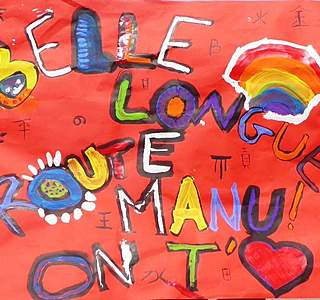 BELLE
LONGUE
ROUTE
MANU!
ON T'